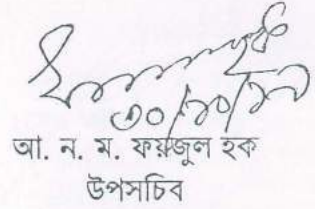 ৩০/১০/১৯
আ. ন. ম. ফয়জুল হক
উপসচিব